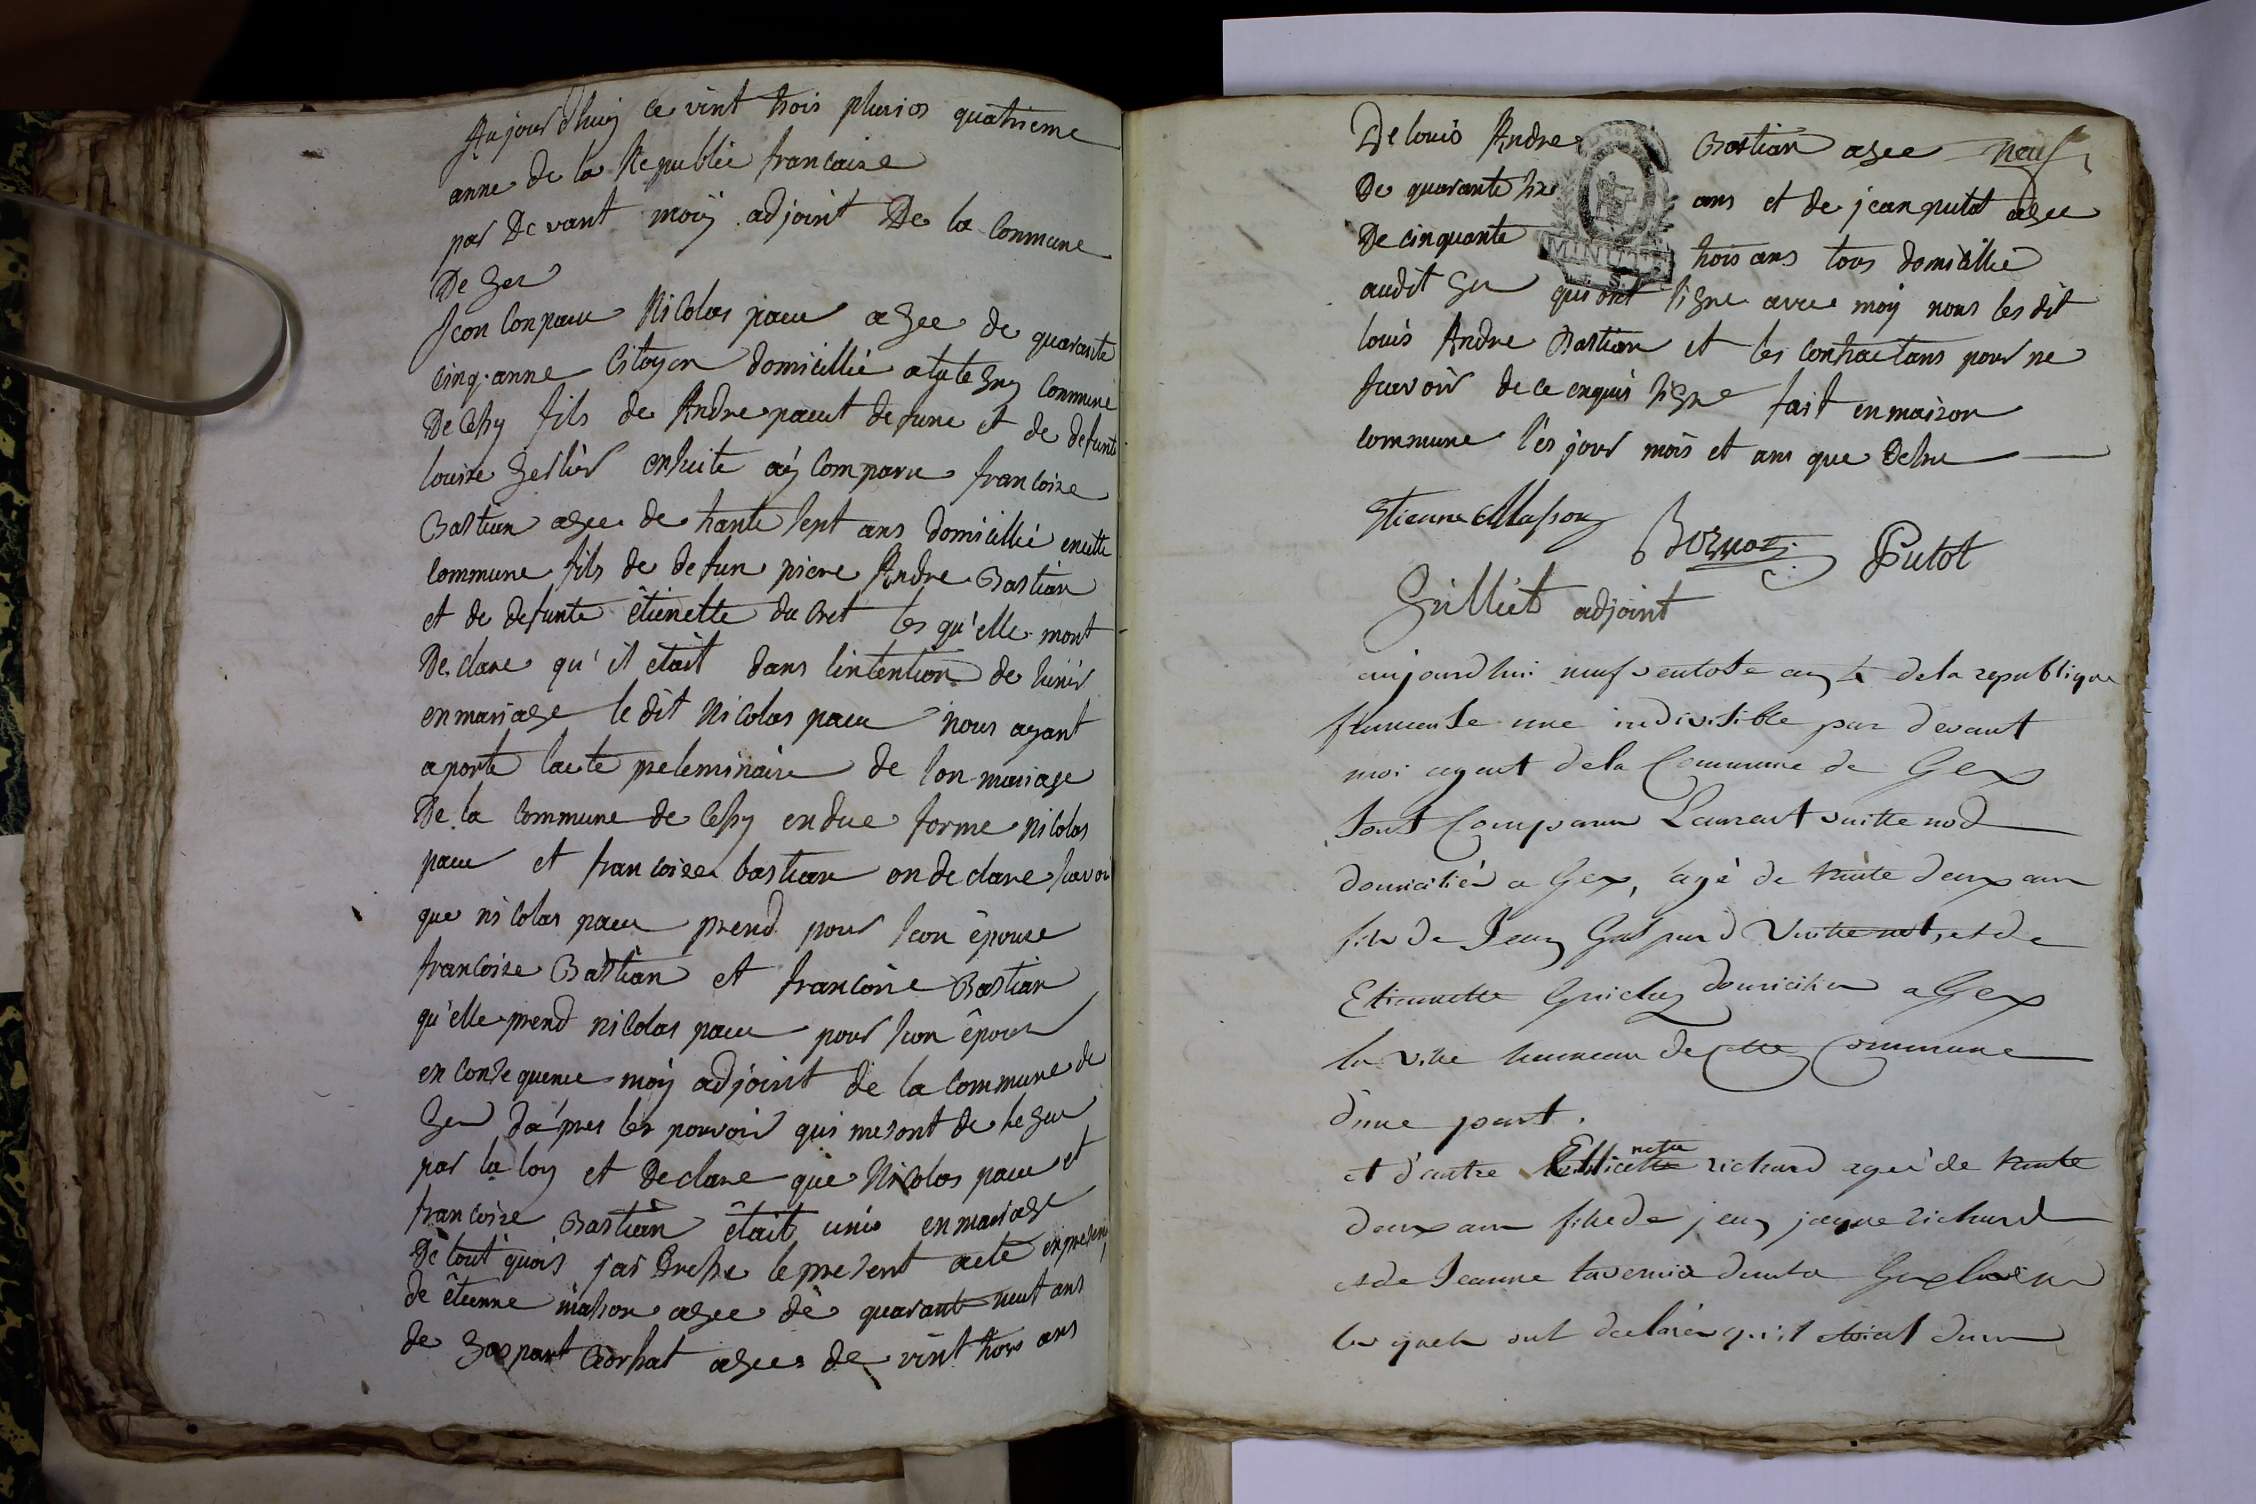 Aujourdhuy ce vint trois pluvios quatrieme
anne de la Republic francaise
par De vant moÿ adjoint De la Conmune
De Gex
Scon Conparu Nicolas paeu agee de quarante
cinq anne Citoyen domicillié a Commune
De Cessy fils de Andre paeut defunt et de defunte
louise Gerlier ensuite aÿ Comparu francoise
Bastian agee de trante sept ans domicillié en cette
commune fils de defun piere Andre Bastian
et de defunte êtienette ducret les qu'elle mont
De clare qu'il était dans lintention de s'unir
en mariage le dit Nicolas paeu nous ayant
aporte lacte preleminaire de son mariage
De la Commune de Cessy en due forme nicolas
paeu et francoise bastian on de clare savoir
que nicolas paeu prend pour son épouse
francoise Bastian et francoise Bastian
qu'elle prend nicolas paeu pour son époux
en consequence moÿ adjoint de la Commune de
Gex d'apres les pouvoir qui me sont de legue
par la loy et declare que Nicolas paeu et
francoise Bastian était unis en mariage
De tout quois jai Dresse le present acte en presence
de êtienne masson agee de quarante neuf ans
de Gaspart agee de vint trois ans
De louis Andre Bastian agee neuf
De quarante six ans et de jean putot agee
De cinquante trois ans tous domicillie
MINUTE
audit Gex qui ont signe avec moy nous les dit
louis Andre Bastian et les contractans pour ne
scavoir de ce enquis signe fait en maison
commune les jour mois et ans que Delsu
Etienne Masson
Putot
Grilliet adjoint
aujourdhui neuf ventose an 4 de la republique
francaise une indivisible par devant
moi agent de la Commune de Gex
sont Comparu Laurent vuittenod
domicilié a Gex, agé de trante deux an
fils de Jean Gaspard Vuittenot, et de
Etiennette domicilié a Gex
la ville hameau de cette Commune
d'une part.
et d'autre nette richard agée de trante
deux an fille de jean jaque richard
et de Jeanne tavernier de
les quels ont declarer qu'il etoient dans